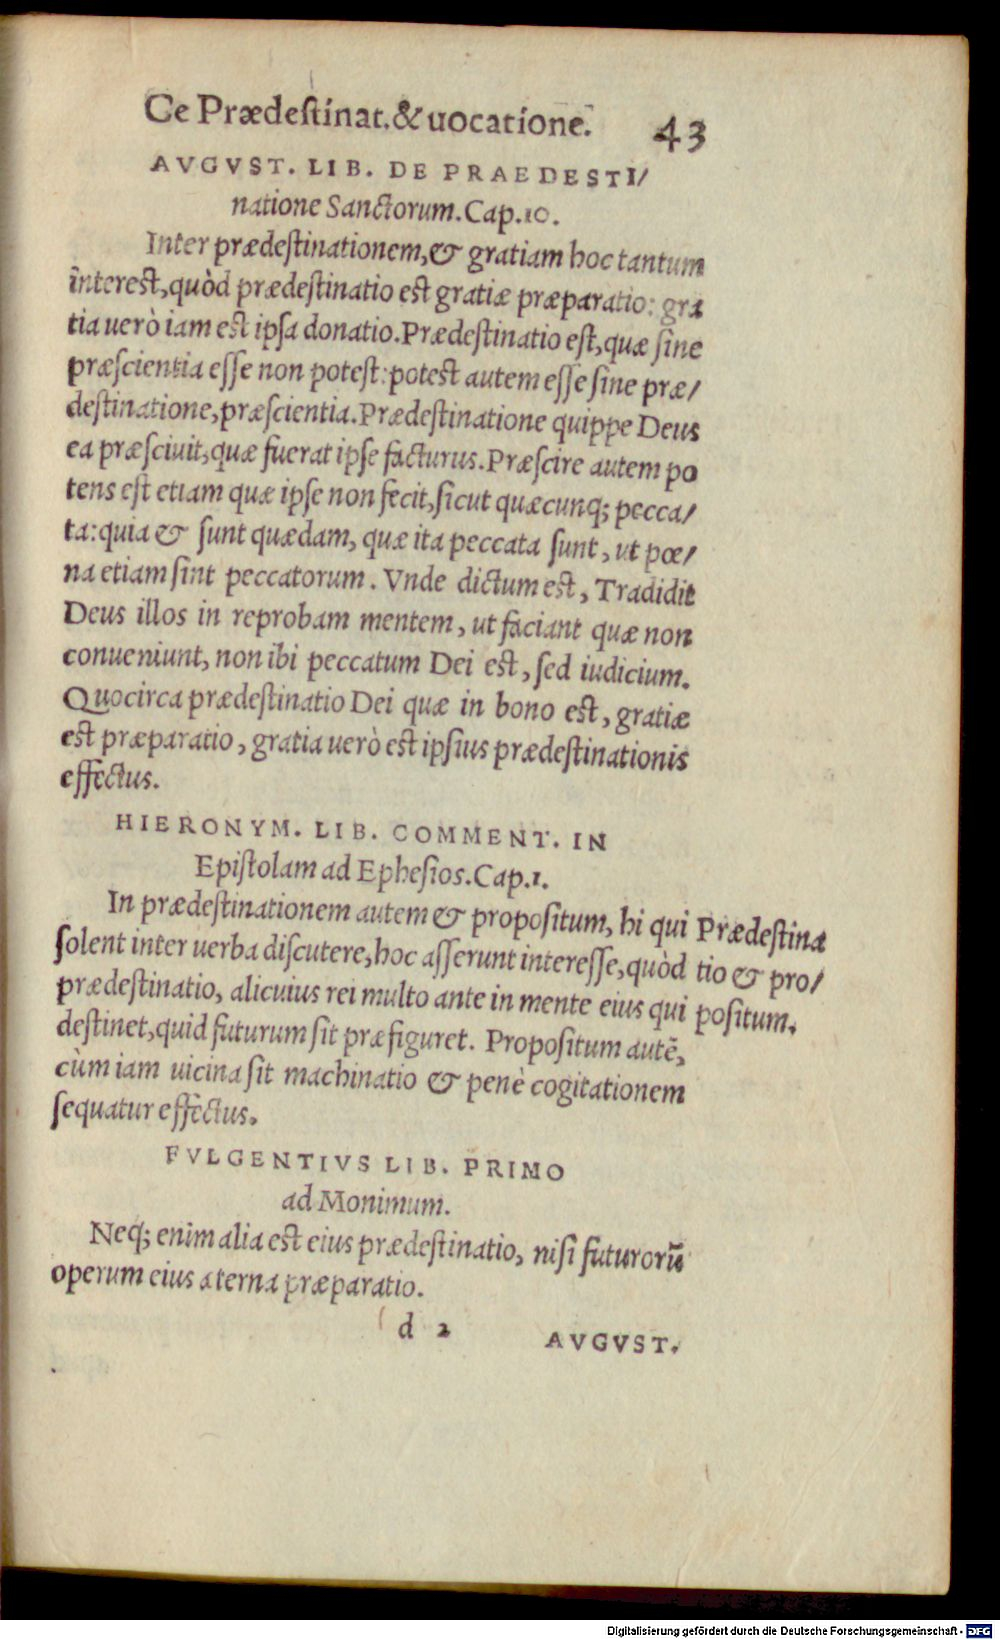 Ce Prædestinat.& uocatione. 43
AVGVST. LIB. DE PRAEDESTI/
natione Sanctorum.Cap.10.
Inter prædestinationem,& gratiam hoc tantum
interest,quòd prædestinatio est gratiæ præparatio: gra
tia uerò iam est ipsa donatio.Prædestinatio est,quæ sine
præscientia esse non potest:potest autem esse sine præ/
destinatione,præscientia.Prædestinatione quippe Deus
ea præsciuit,quæ fuerat ipse facturus.Præscire autem po
tens est etiam quæ ipse non fecit,sicut quæcunq; pecca/
ta:quia & sunt quædam, quæ ita peccata sunt, ut pœ/
na etiam sint peccatorum. Vnde dictum est, Tradidit
Deus illos in reprobam mentem, ut faciant quæ non
conueniunt, non ibi peccatum Dei est, sed iudicium.
Quocirca prædestinatio Dei quæ in bono est, gratiæ
est præparatio, gratia uerò est ipsius prædestinationis
effectus.
HIERONYM. LIB. COMMENT. IN
Epistolam ad Ephesios.Cap.1.
In prædestinationem autem & propositum, hi qui
solent inter uerba discutere,hoc asserunt interesse,quòd
prædestinatio, alicuius rei multo ante in mente eius qui
destinet,quid futurum sit præfiguret. Propositum autē,
cùm iam uicina sit machinatio & penè cogitationem
sequatur effectus.
Prædestina
tio & pro/
positum.
FVLGENTIVS LIB. PRIMO
ad Monimum.
Neq; enim alia est eius prædestinatio, nisi futurorū
operum eius æterna præparatio.
d 2 AVGVST.
Digitalisierung gefördert durch die Deutsche Forschungsgemeinschaft - DFG